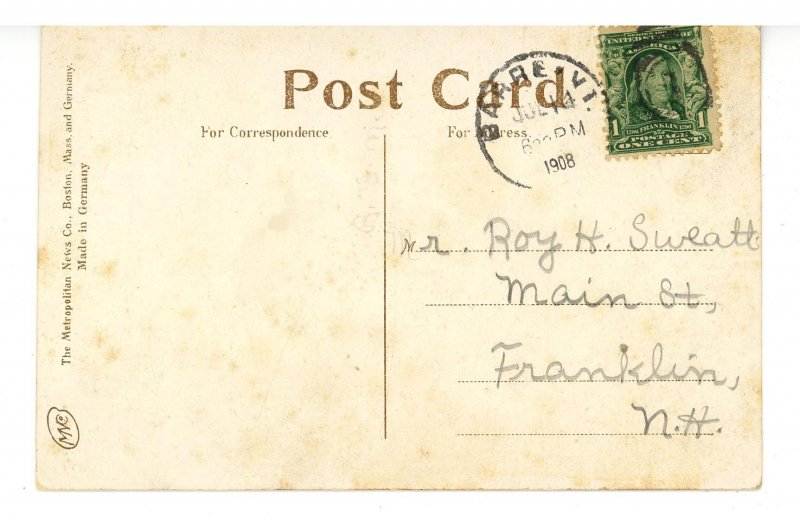 Post Card
For Correspondence.
For Address.
BARRE, VT.
JUL 14
PM
1908
UNITED STATES OF
AMERICA
1
1
1706 FRANKLIN 1790
POSTAGE
ONE CENT
Mr. Roy H. Sweatt
Main St,
Franklin,
N.H.
The Metropolitan News Co., Boston, Mass. and Germany.
Made in Germany
MNCo